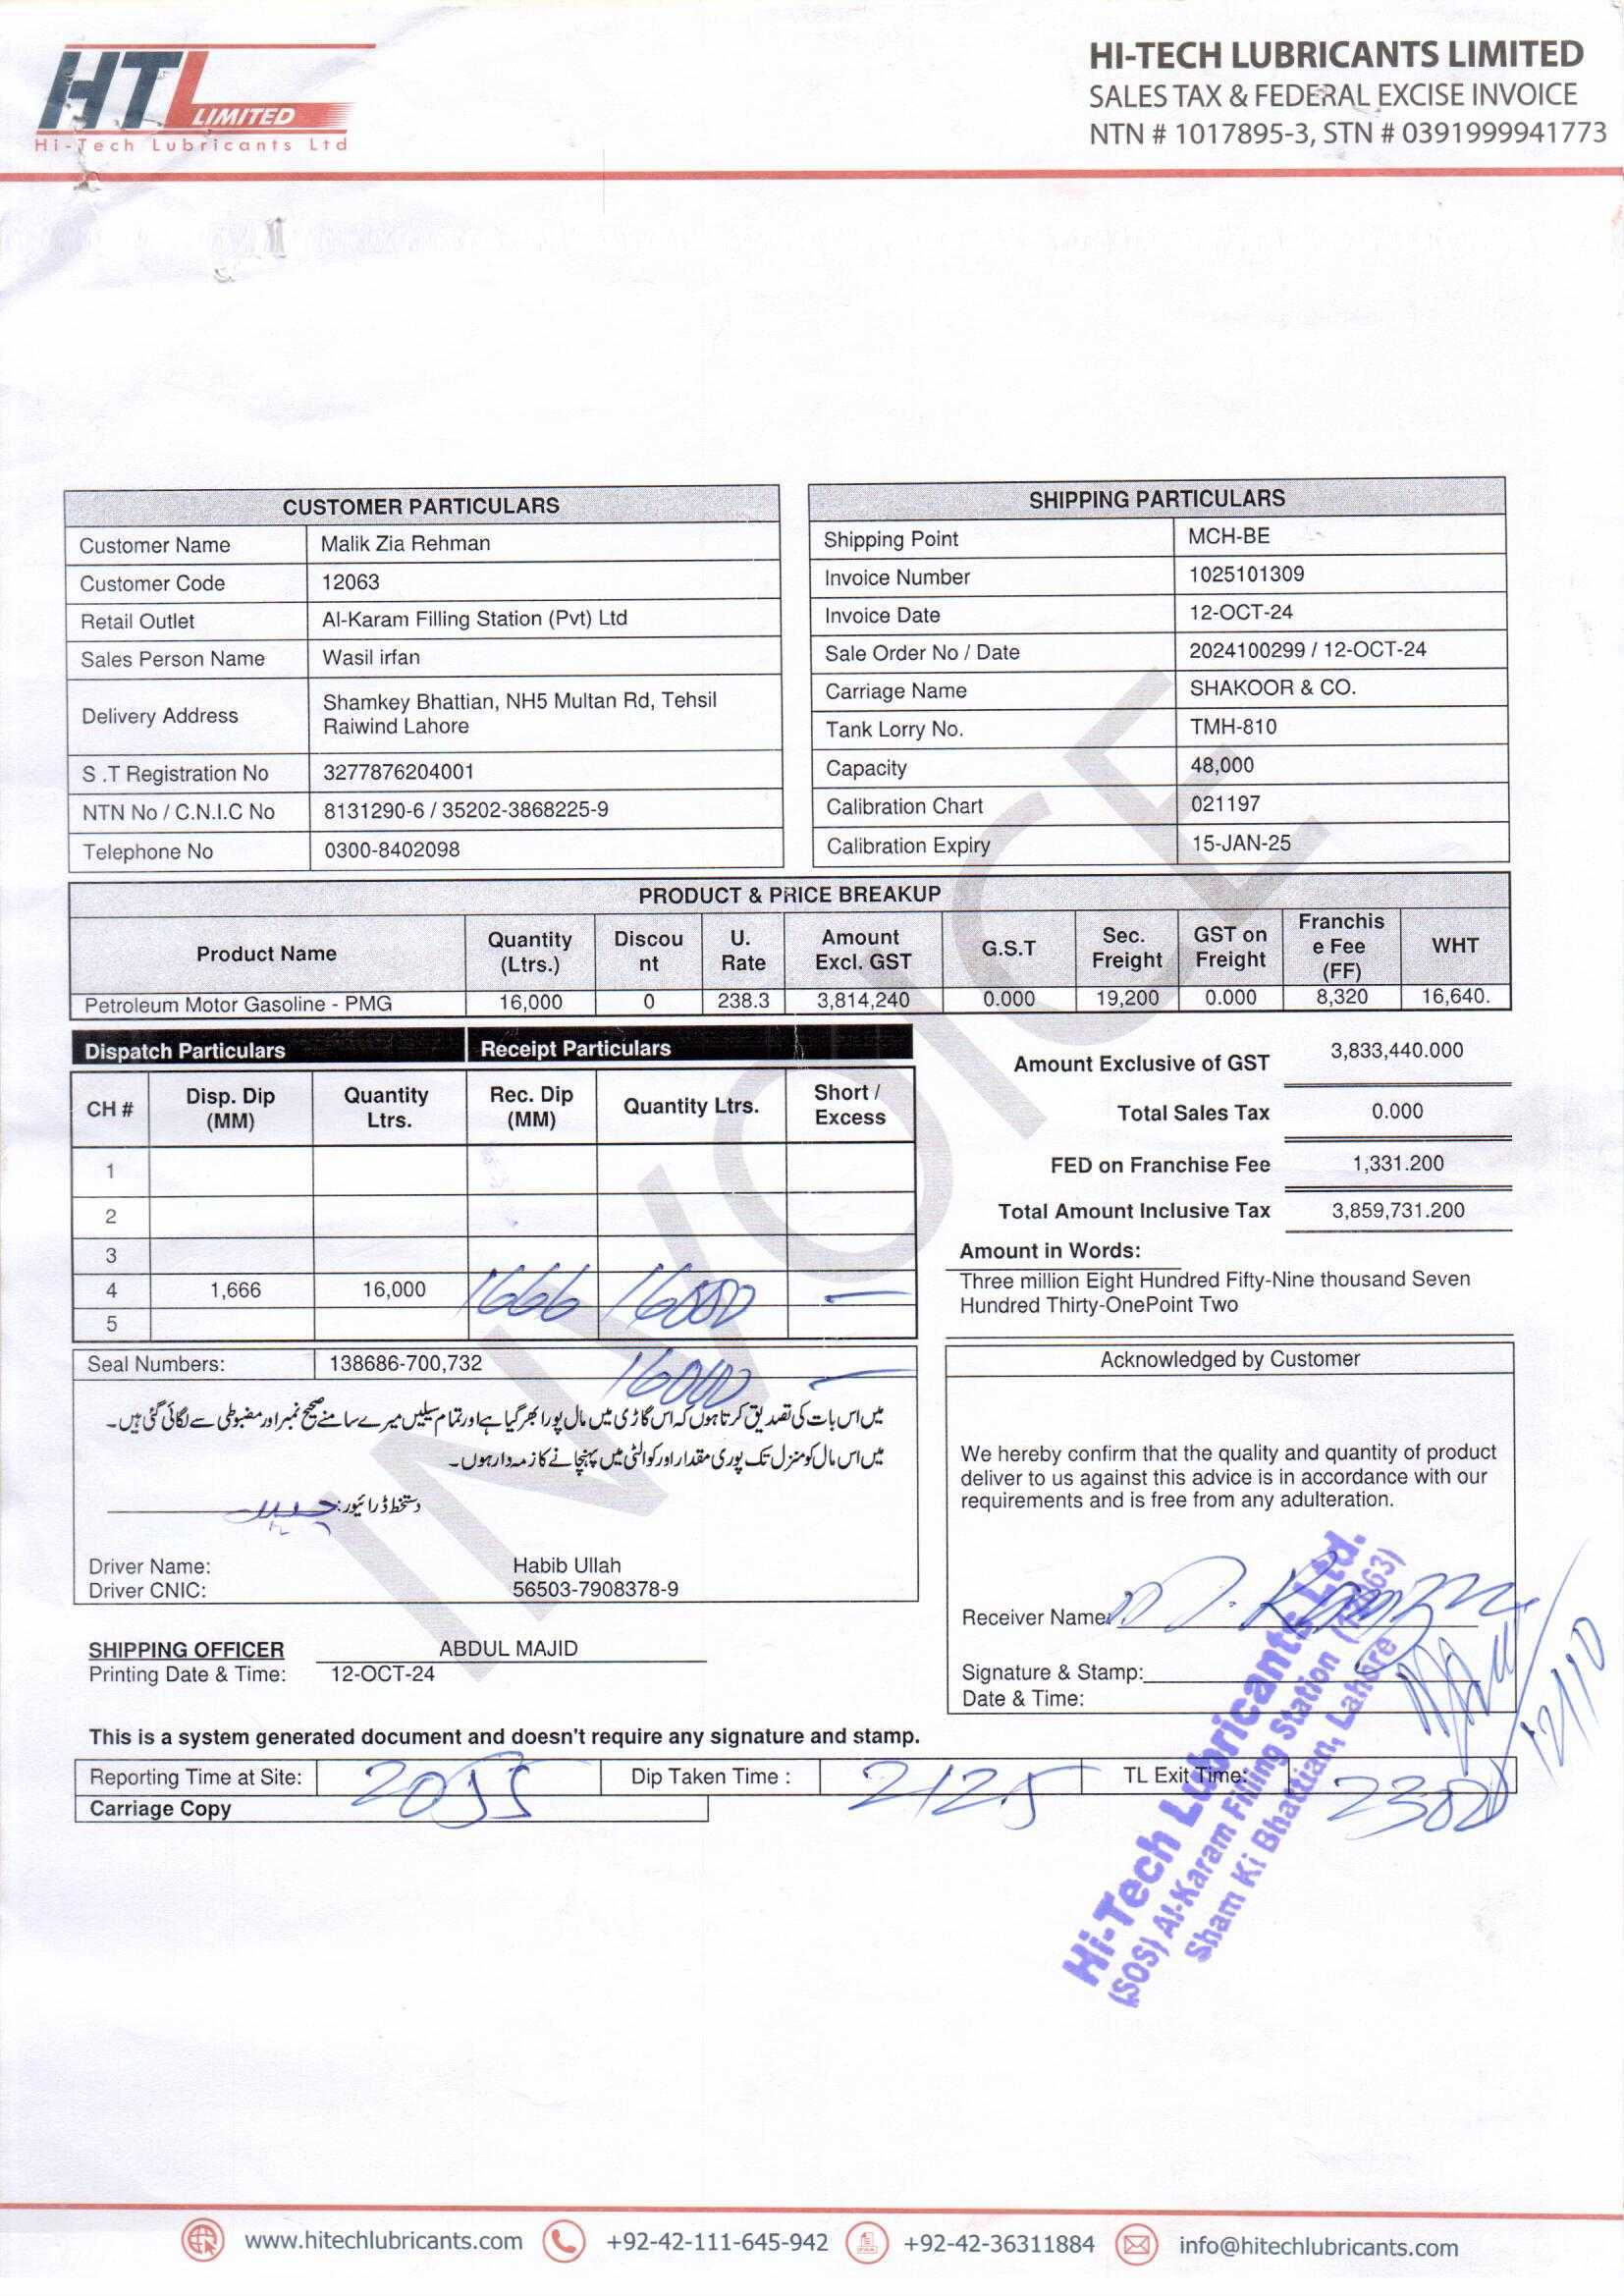 HTL LIMITED
Hi-Tech Lubricants Ltd
HI-TECH LUBRICANTS LIMITED
SALES TAX & FEDERAL EXCISE INVOICE
NTN # 1017895-3, STN # 0391999941773
CUSTOMER PARTICULARS
Customer Name Malik Zia Rehman
Customer Code 12063
Retail Outlet Al-Karam Filling Station (Pvt) Ltd
Sales Person Name Wasil irfan
Delivery Address Shamkey Bhattian, NH5 Multan Rd, Tehsil
Raiwind Lahore
S .T Registration No 3277876204001
NTN No / C.N.I.C No 8131290-6 / 35202-3868225-9
Telephone No 0300-8402098
SHIPPING PARTICULARS
Shipping Point MCH-BE
Invoice Number 1025101309
Invoice Date 12-OCT-24
Sale Order No / Date 2024100299 / 12-OCT-24
Carriage Name SHAKOOR & CO.
Tank Lorry No. TMH-810
Capacity 48,000
Calibration Chart 021197
Calibration Expiry 15-JAN-25
INVOICE
PRODUCT & PRICE BREAKUP
Product Name Quantity (Ltrs.) Discou nt U. Rate Amount Excl. GST G.S.T Sec. Freight GST on Freight Franchis e Fee (FF) WHT
Petroleum Motor Gasoline - PMG 16,000 0 238.3 3,814,240 0.000 19,200 0.000 8,320 16,640.
Dispatch Particulars Receipt Particulars
CH # Disp. Dip (MM) Quantity Ltrs. Rec. Dip (MM) Quantity Ltrs. Short / Excess
1
2
3
4 1,666 16,000 1666 16000 —
5
Seal Numbers: 138686-700,732 16000 —
میں اس بات کی تصدیق کرتا ہوں کہ اس گاڑی میں مال پورا بھر گیا ہے اور تمام سیلیں میرے سامنے صحیح نمبر اور مضبوطی سے لگائی گئی ہیں۔
میں اس مال کو منزل تک پوری مقدار اور کوالٹی میں پہنچانے کا زمہ دار ہوں۔
دستخط ڈرائیور:
Driver Name: Habib Ullah
Driver CNIC: 56503-7908378-9
SHIPPING OFFICER ABDUL MAJID
Printing Date & Time: 12-OCT-24
Amount Exclusive of GST 3,833,440.000
Total Sales Tax 0.000
FED on Franchise Fee 1,331.200
Total Amount Inclusive Tax 3,859,731.200
Amount in Words:
Three million Eight Hundred Fifty-Nine thousand Seven
Hundred Thirty-OnePoint Two
Acknowledged by Customer
We hereby confirm that the quality and quantity of product
deliver to us against this advice is in accordance with our
requirements and is free from any adulteration.
Receiver Name:
Signature & Stamp:
Date & Time:
12/10
Hi-Tech Lubricants Ltd.
(SOS) Al-Karam Filling Station (12063)
Sham Ki Bhattian, Lahore
This is a system generated document and doesn't require any signature and stamp.
Reporting Time at Site: 2055 Dip Taken Time : 2125 TL Exit Time: 2300
Carriage Copy
www.hitechlubricants.com +92-42-111-645-942 +92-42-36311884 info@hitechlubricants.com